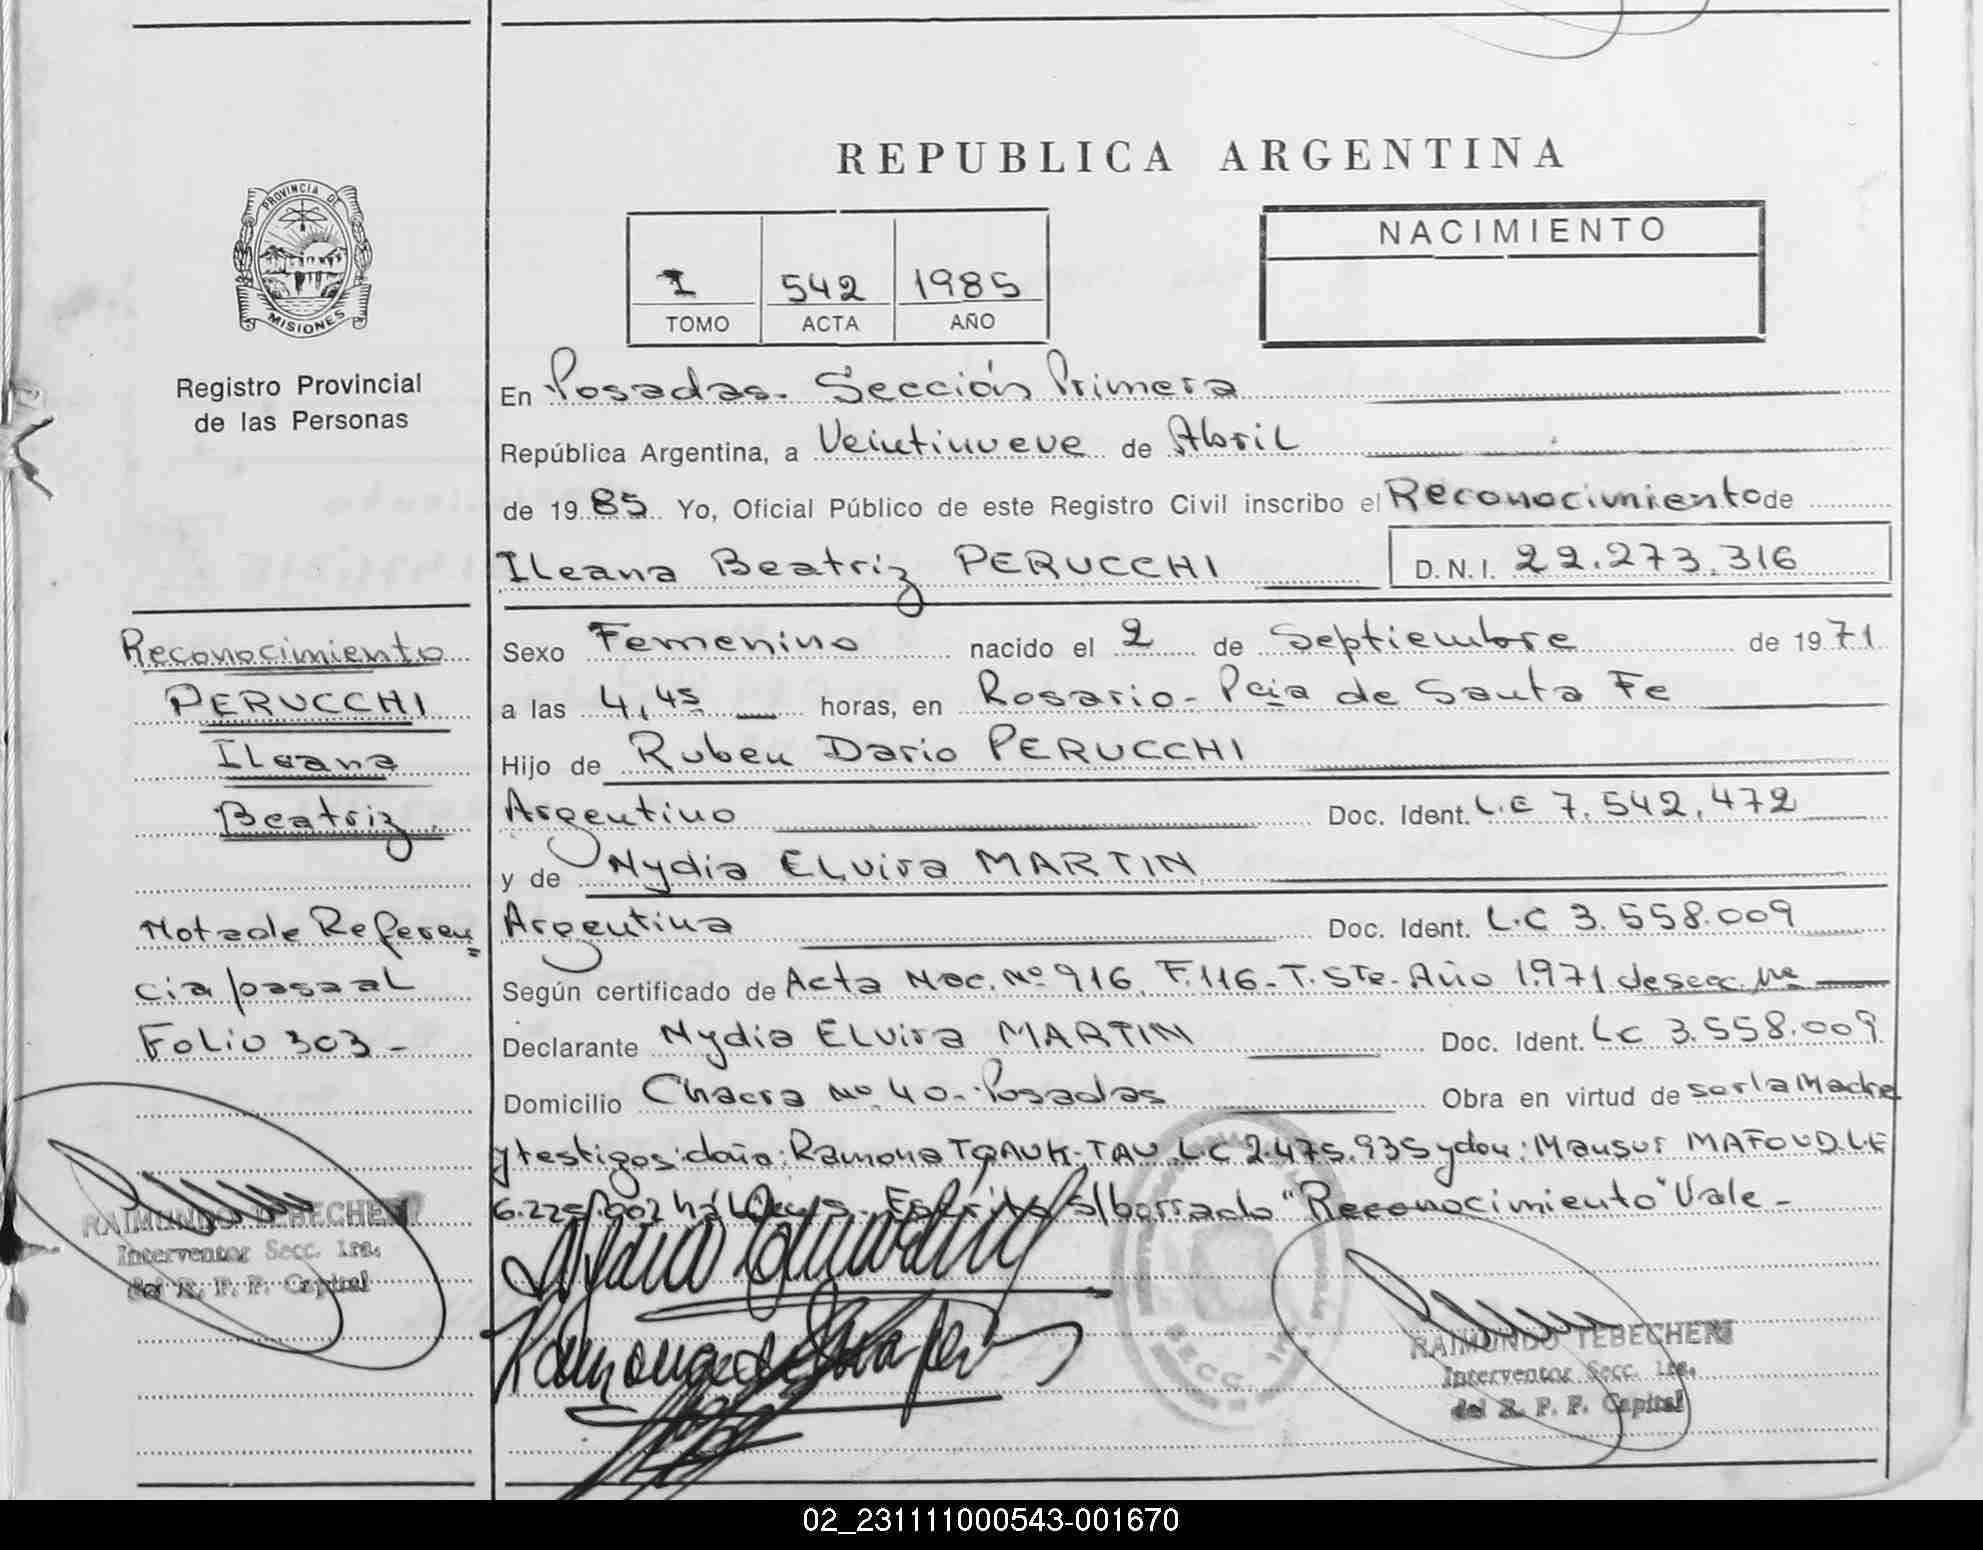 REPUBLICA ARGENTINA
PROVINCIA DE
MISIONES
Registro Provincial
de las Personas
I 542 1985
TOMO ACTA AÑO
NACIMIENTO
En Posadas. Sección Primera
República Argentina, a Veintinueve de Abril
de 19 85 Yo, Oficial Público de este Registro Civil inscribo el Reconocimiento de
Ileana Beatriz PERUCCHI D.N.I. 22.273.316
Reconocimiento
PERUCCHI
Ileana
Beatriz.
Nota de Referen=
cia pasa al
Folio 303-
Sexo Femenino nacido el 2 de Septiembre de 19 71
a las 4,45 horas, en Rosario - Pcia de Santa Fe
Hijo de Ruben Dario PERUCCHI
Argentino Doc. Ident. L.E 7.542.472
y de Nydia Elvira MARTIN
Argentina Doc. Ident. L.C 3.558.009
Según certificado de Acta Nac. Nº 916. F.116 - T. STe - Año 1.971 de secc.
Declarante Nydia Elvira MARTIN Doc. Ident. LC 3.558.009
Domicilio Chacra Nº 40.- Posadas Obra en virtud de ser la Madre
y testigos doña: Ramona TAU L.C 2.475.935 y don: Mansur MAFOUD L.E
6.225.002 hábiles - s/borrado "Reconocimiento" Vale -
RAIMUNDO TEBECHERI
Interventor Secc. 1ra.
del R. P. P. Capital
SECC. 1ra.
RAIMUNDO TEBECHERI
Interventor Secc. 1ra.
del R. P. P. Capital
02_231111000543-001670